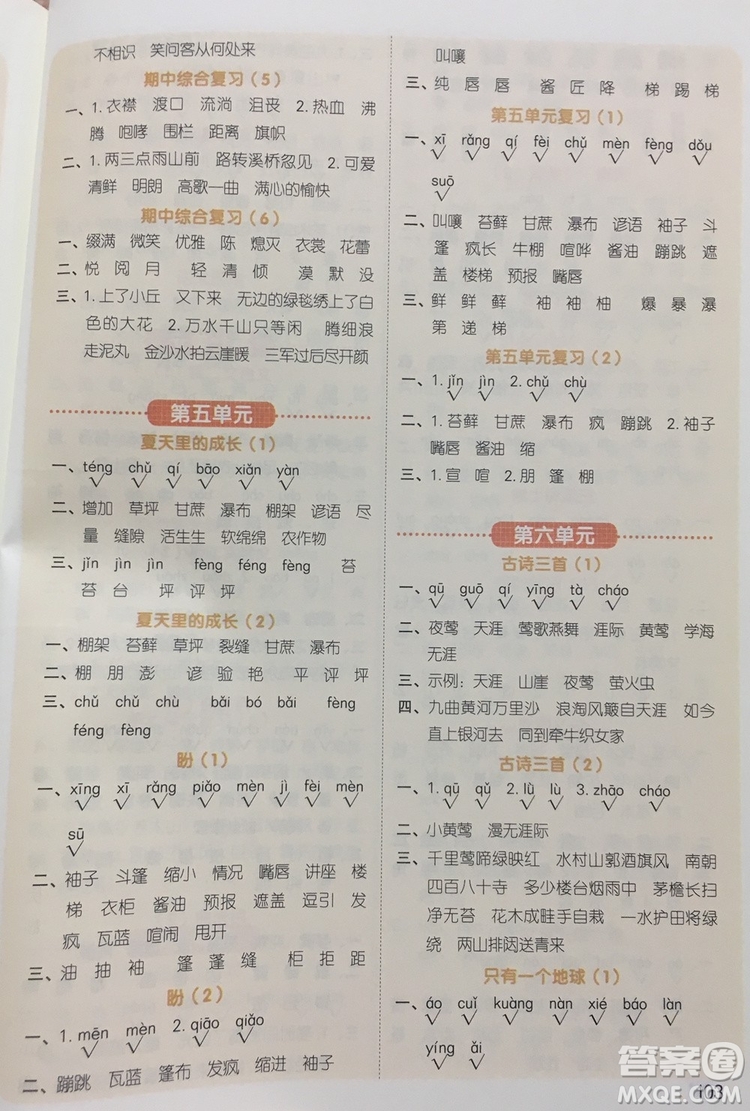 不相识 笑问客从何处来
期中综合复习（5）
一、1.衣襟 渡口 流淌 沮丧 2.热血 沸
腾 咆哮 围栏 距离 旗帜
二、1.两三点雨山前 路转溪桥忽见 2.可爱
清鲜 明朗 高歌一曲 满心的愉快
期中综合复习（6）
一、缀满 微笑 优雅 陈 熄灭 衣裳 花蕾
二、悦 阅 月 轻 清 倾 漠 默 没
三、1.上了小丘 又下来 无边的绿毯绣上了白
色的大花 2.万水千山只等闲 腾细浪
走泥丸 金沙水拍云崖暖 三军过后尽开颜
第五单元
夏天里的成长（1）
一、téng chǔ qí bāo xiǎn yàn
二、增加 草坪 甘蔗 瀑布 棚架 谚语 尽
量 缝隙 活生生 软绵绵 农作物
三、jǐn jìn jìn fèng féng fèng 苔
苔 台 坪 评 坪
夏天里的成长（2）
一、棚架 苔藓 草坪 裂缝 甘蔗 瀑布
二、棚 朋 澎 谚 验 艳 平 评 坪
三、chǔ chǔ chù bǎi bó bǎi fèng
féng fèng
盼（1）
一、xīng xī rǎng piǎo mèn jì fèi mèn
sū
二、袖子 斗篷 缩小 情况 嘴唇 讲座 楼
梯 衣柜 酱油 预报 遮盖 逗引 发
疯 瓦蓝 喧闹 甩开
三、油 抽 袖 篷 蓬 缝 柜 拒 距
盼（2）
一、1.mēn mèn 2.qiāo qiǎo
二、蹦跳 瓦蓝 篷布 发疯 缩进 袖子
叫嚷
三、纯 唇 唇 酱 匠 降 梯 踢 梯
第五单元复习（1）
一、xī rǎng qí fèi chǔ mèn fèng dǒu
suō
二、叫嚷 苔藓 甘蔗 瀑布 谚语 袖子 斗
篷 疯长 牛棚 喧哗 酱油 蹦跳 遮
盖 楼梯 预报 嘴唇
三、鲜 鲜 藓 袖 袖 柚 爆 暴 瀑
第 递 梯
第五单元复习（2）
一、1.jǐn jìn 2.chǔ chù
二、1.苔藓 甘蔗 瀑布 疯 蹦跳 2.袖子
嘴唇 酱油 缩
三、1.宣 喧 2.朋 篷 棚
第六单元
古诗三首（1）
一、qū guō qí yīng tà cháo
二、夜莺 天涯 莺歌燕舞 涯际 黄莺 学海
无涯
三、示例：天涯 山崖 夜莺 萤火虫
四、九曲黄河万里沙 浪淘风簸自天涯 如今
直上银河去 同到牵牛织女家
古诗三首（2）
一、1.qū qǔ 2.lù lù 3.zhāo cháo
二、小黄莺 漫无涯际
三、千里莺啼绿映红 水村山郭酒旗风 南朝
四百八十寺 多少楼台烟雨中 茅檐长扫
静无苔 花木成畦手自栽 一水护田将绿
绕 两山排闼送青来
只有一个地球（1）
一、áo cuǐ kuàng nàn xié báo làn
yíng ǎi
103
答案圈
MXQE.COM